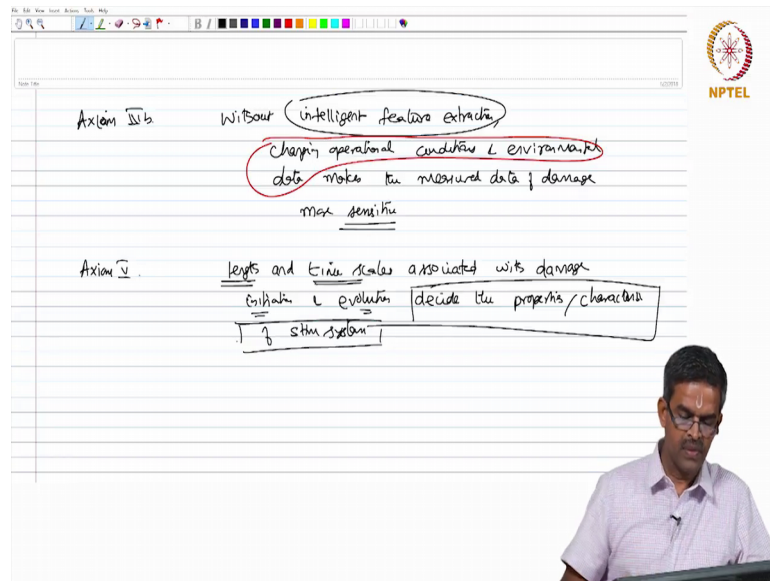 File Edit View Insert Actions Tools Help
B I
Note Title
5/2/2018
NPTEL
Axiom IVb. Without intelligent feature extraction,
changing operational conditions & environmental
data makes the measured data of damage
more sensitive
Axiom V. length and time scales associated with damage
initiation & evolution decide the properties/characters
of SHM system